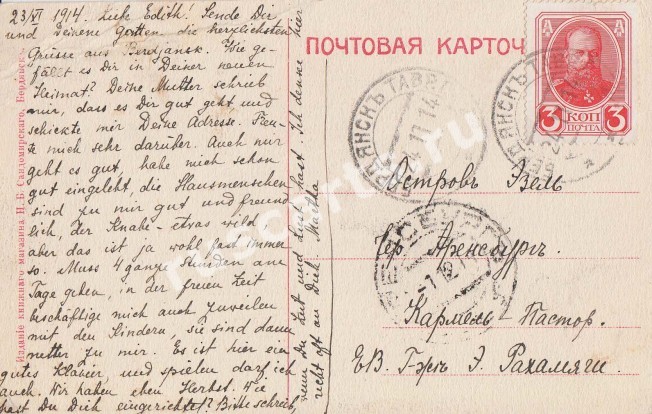 23/VI 1914. Liebe Edith! Sende Dir
und Deinem Gatten die herzlichsten
Grüsse aus Berdjansk. Wie ge-
fällt es Dir in Deiner neuen
Heimat? Deine Mutter schrieb
mir, dass es Dir gut geht und
schickte mir Deine Adresse. Freu-
te mich sehr darüber. Auch mir
geht es gut, habe mich schon
gut eingelebt, die Hausmenschen
sind zu mir gut und freund
lich, der Knabe - etwas wild
aber das ist ja wohl fast immer
so. Muss 4 ganze Stunden am
Tage geben, in der freien Zeit
beschäftige mich auch zuweilen
mit den Kindern, sie sind dann
netter zu mir. Es ist hier ein
gutes Klavier, und spielen darf ich
auch. Wir haben eben Herbst. Wie
hast Du Dich eingerichtet? Bitte schreib,
wenn Du Zeit und Lust hast. Ich denke hier
recht oft an Dich. Martha
Изданіе книжнаго магазина Н. Б. Сандомирскаго, Бердянскъ
ПОЧТОВАЯ КАРТОЧ
3 КОП 3
ПОЧТА
БЕРДЯНСКЪ ТАВР.
Островъ Эзель
Гор. Аренсбургъ.
Кармель Пастор.
ЕВ. Г-жѣ Э. Рахамяги.